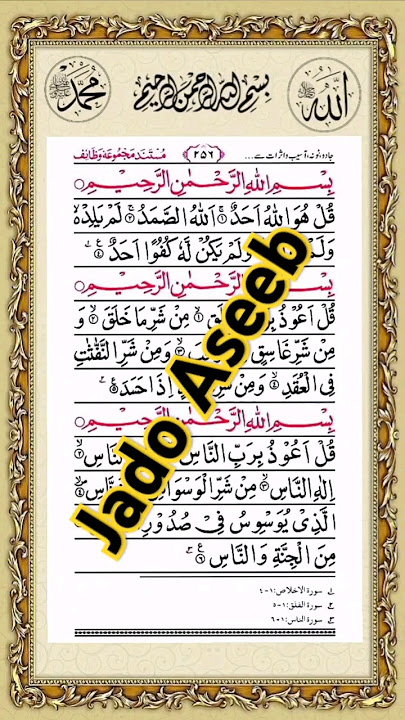 محمد
بسم الله الرحمن الرحيم
الله
جادو، ٹونہ، آسیب و اثرات سے... ﴿۲۵۶﴾ مُستند مجموعہ وظائف
بِسْمِ اللهِ الرَّحْمٰنِ الرَّحِيْمِ
قُلْ هُوَ اللهُ اَحَدٌ ۱ اَللهُ الصَّمَدُ ۲ لَمْ يَلِدْ ۙ وَ
وَلَمْ وَلَمْ يَكُنْ لَّهٗ كُفُوًا اَحَدٌ ۴
بِسْمِ اللهِ الرَّحْمٰنِ الرَّحِيْمِ
قُلْ اَعُوْذُ مِنْ شَرِّ مَا خَلَقَ ۲ وَ
مِنْ شَرِّ غَاسِقٍ وَمِنْ شَرِّ النَّفّٰثٰتِ
فِي الْعُقَدِ ۴ وَمِنْ اِذَا حَسَدَ ۵
بِسْمِ اللهِ الرَّحْمٰنِ الرَّحِيْمِ
قُلْ اَعُوْذُ بِرَبِّ النَّاسِ النَّاسِ ۲
اِلٰهِ النَّاسِ ۳ مِنْ شَرِّ الْوَسْوَاسِ ۴
الَّذِيْ يُوَسْوِسُ فِيْ صُدُوْرِ
مِنَ الْجِنَّةِ وَالنَّاسِ ۶
Jado Aseeb
۱ سورة الاخلاص: ۱-۴
۲ سورة الفلق: ۱-۵
۳ سورة الناس: ۱-۶